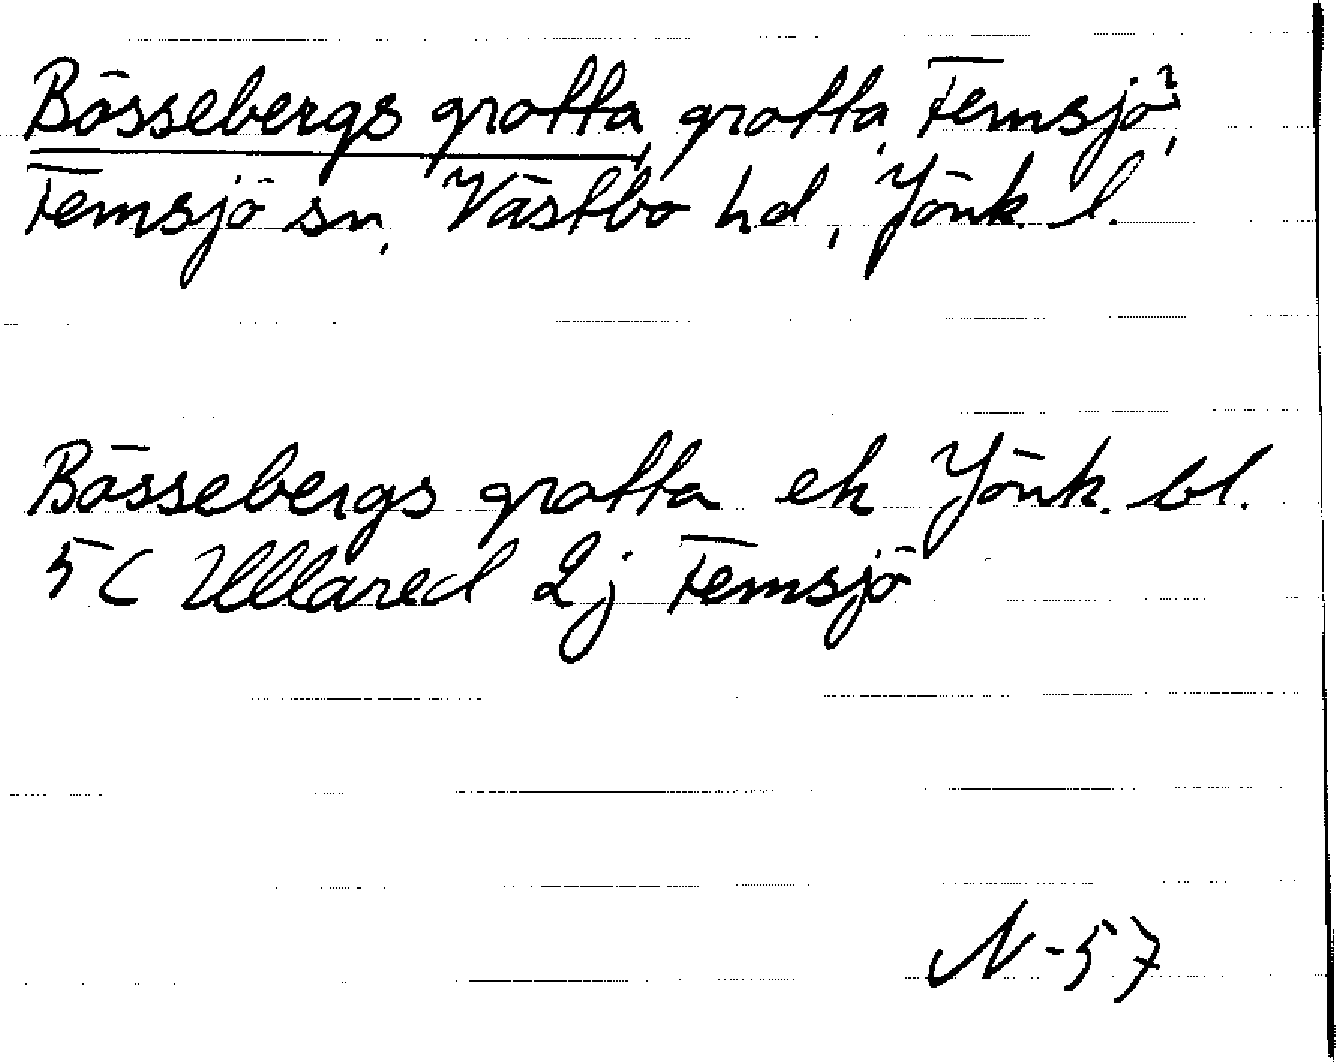 Bössebergs grotta, grotta, Femsjö?,
Femsjö sn, Västbo hd, Jönk. l.
Bössebergs grotta ek Jönk. bl.
5C Ullared 2j Femsjö
N-57